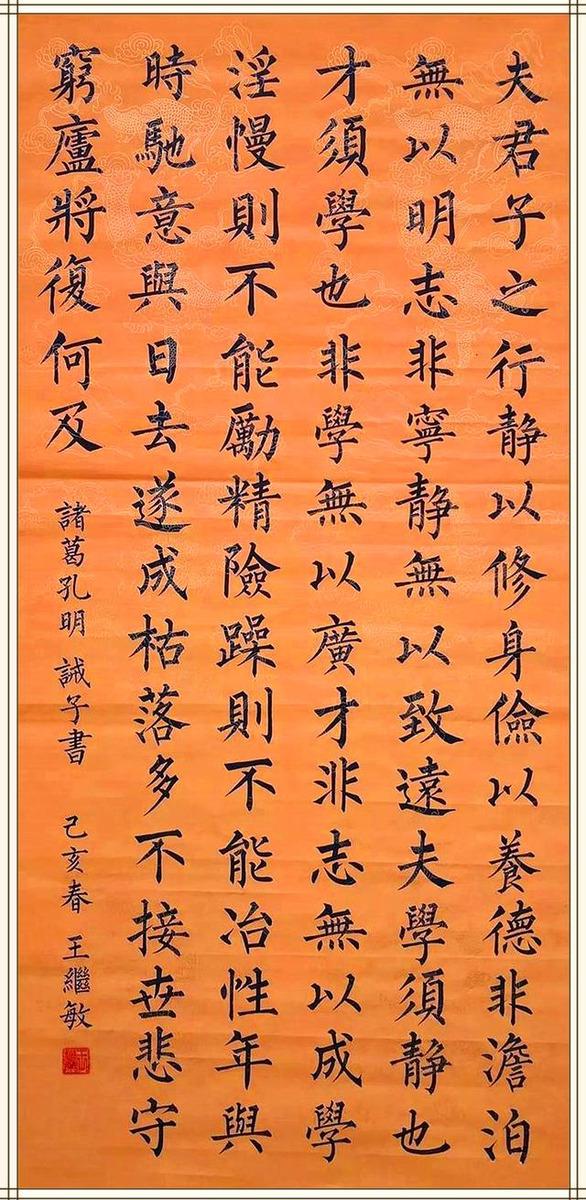 夫君子之行静以修身儉以養德非澹泊
無以明志非寧静無以致遠夫學須静也
才須學也非學無以廣才非志無以成學
淫慢則不能勵精險躁則不能冶性年與
時馳意與日去遂成枯落多不接世悲守
窮廬將復何及
諸葛孔明 誡子書 己亥春 王繼敏